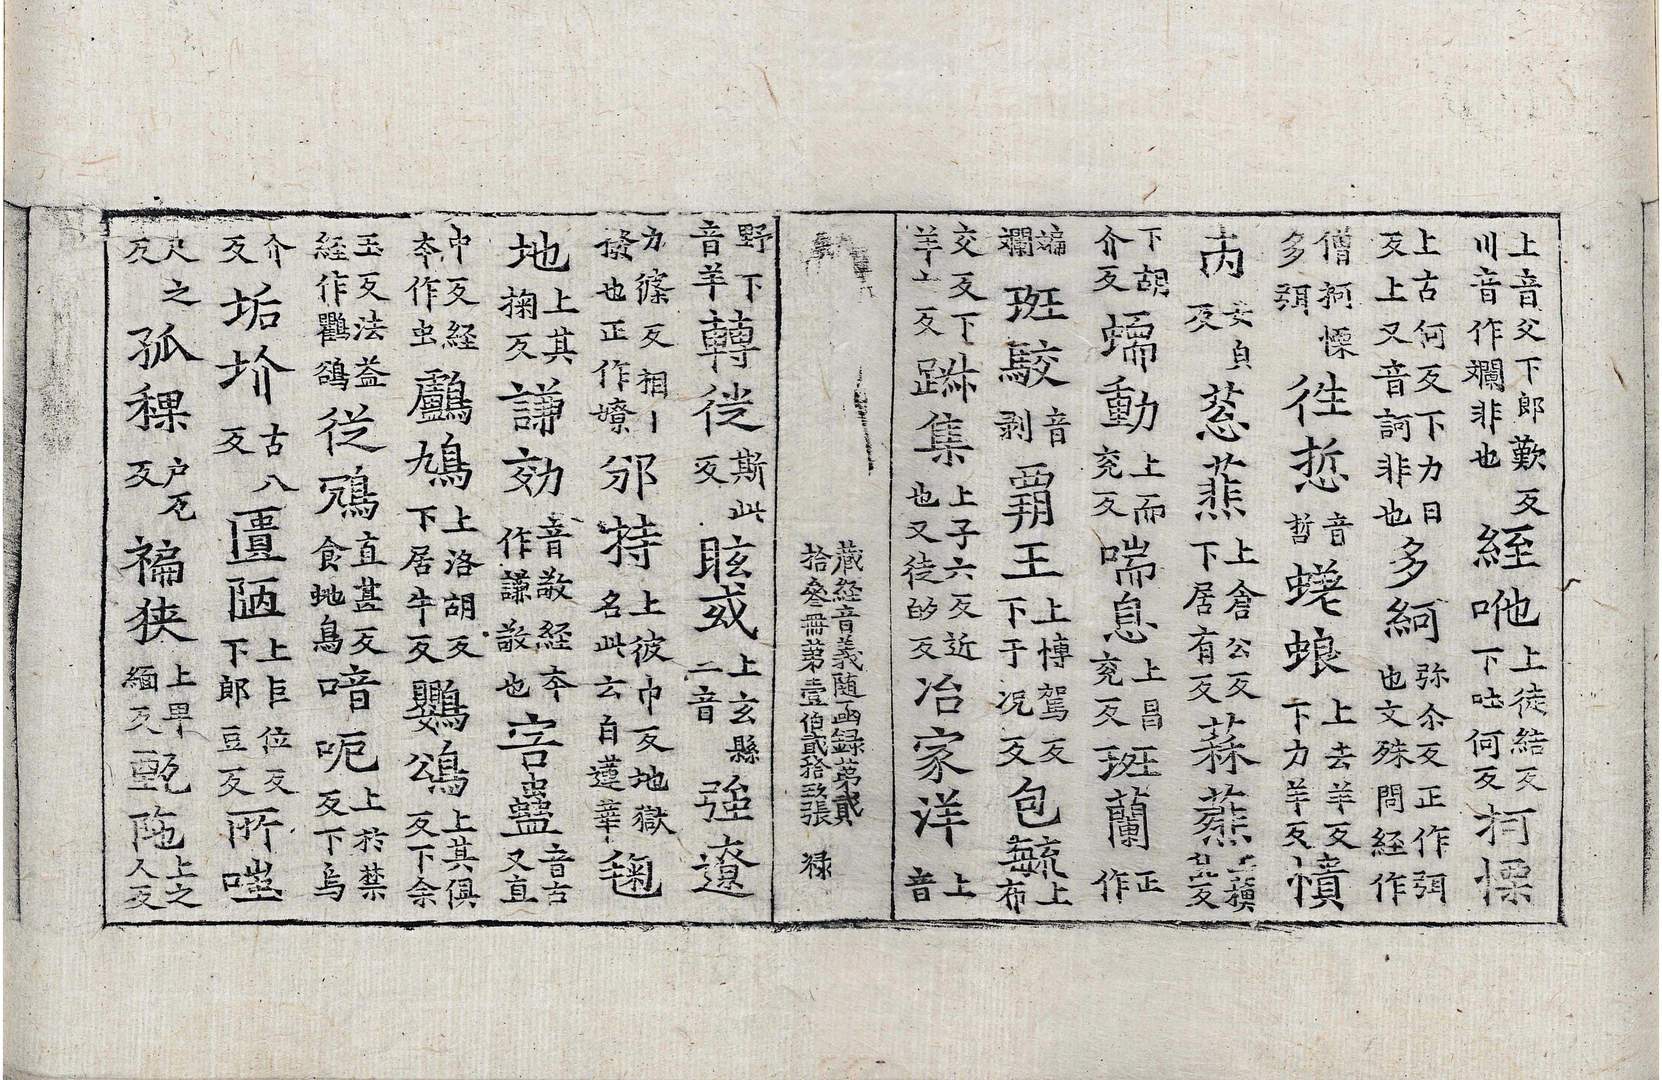 上音父下郎歎反川音作斕非也絰咃上徒結反下吐何反柯慄
上古何反下力日反上又音訶非也多綗弥尒反正作弭也文殊問経作
僧柯慄多弭徃悊音哲蜣蜋上去羊反下力羊反憤
丙女貞反茐䔇上倉公反下居有反䔉蒸
下胡介反蠕動上而兖反喘息上昌兖反斑蘭正作
斒斕斑駮音剥覇王上博駕反下于况反包毓上布
交反下羊六反踧集上子六反近也又徒的反冶家洋上音
藏経音義随函録第貳拾叄冊第壹伯貳拾玖張 禄
野下音羊轉徙斯此反眩惑上玄縣二音強遼
力篠反相丨撩也正作嫽邠持上彼巾反地獄名此云自遵華毱
地上其掬反謙効音敬経本作謙敬也害蠱音古又直
中反経本作虫鸕鳩上洛胡反下居牛反鸚鵒上其俱反下余
玉反法益経作鸜鵒従鴆直甚反食虵鳥喑呃上於禁反下烏
介反垢圿古八反匱陋上巨位反下郎豆反所嗤
尺之反孤稞户瓦反褊狭上畀緬反甄陁上之人反